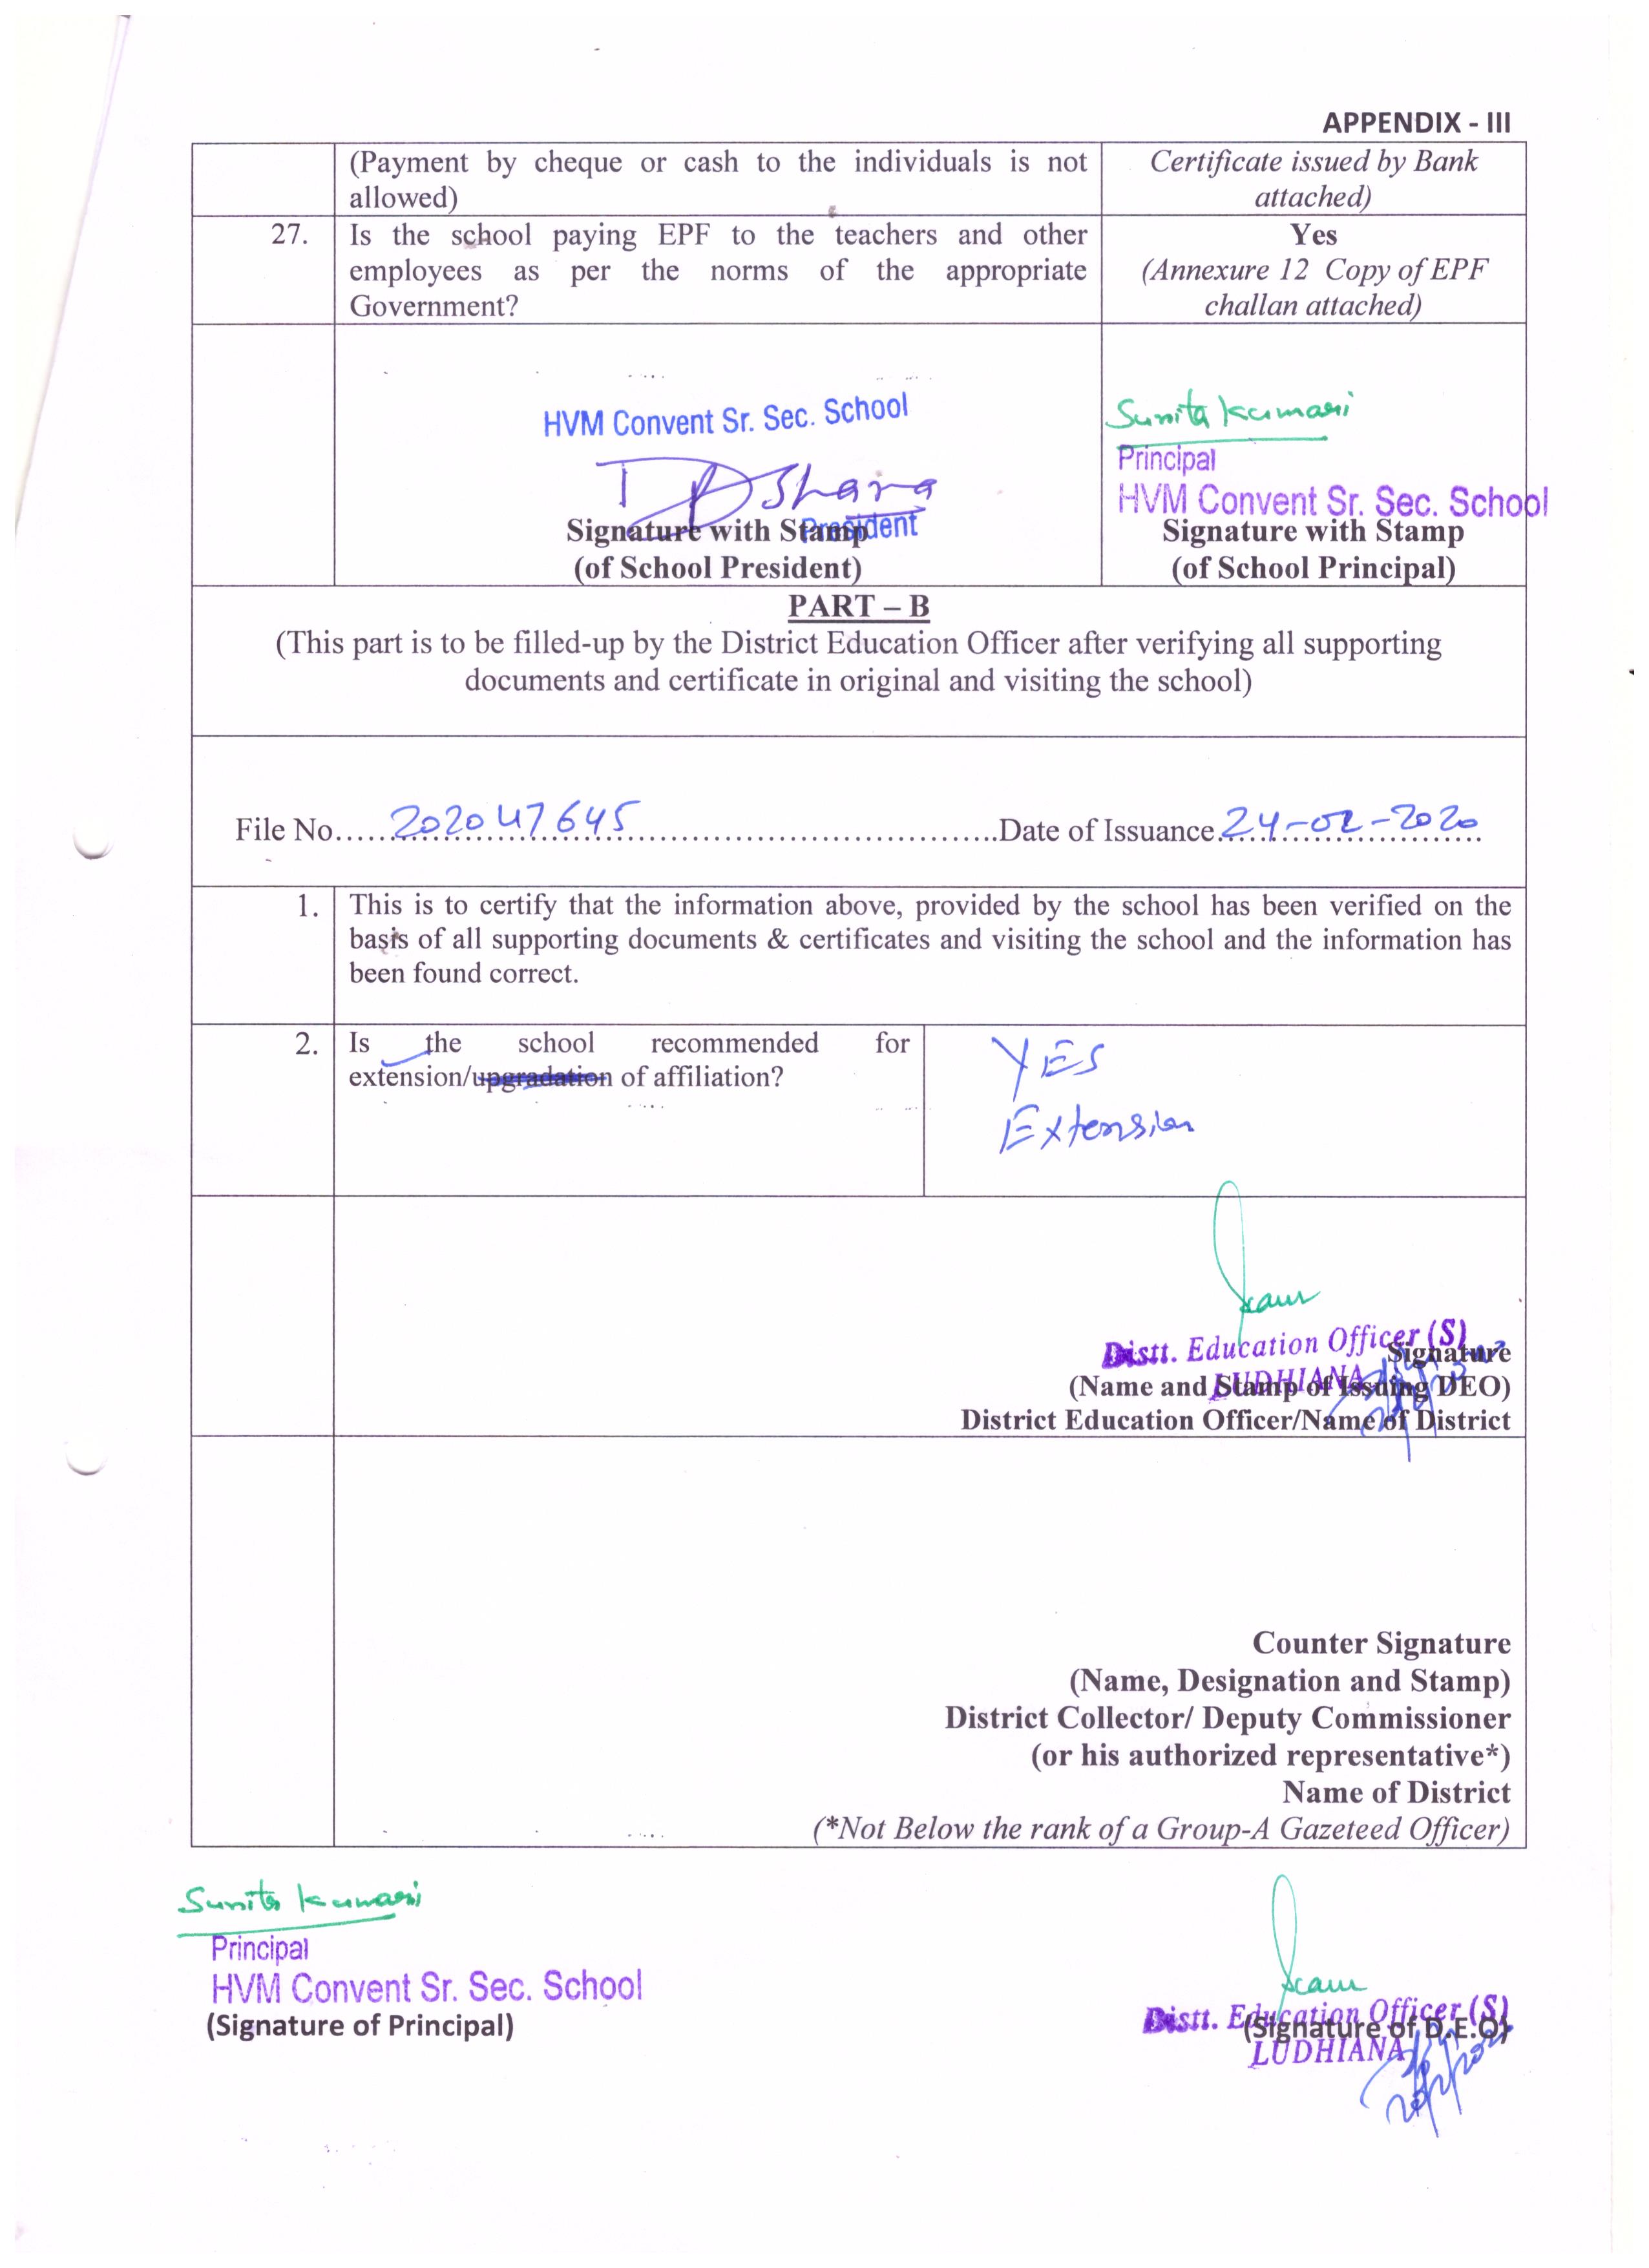 APPENDIX - III
(Payment by cheque or cash to the individuals is not
allowed)
Certificate issued by Bank
attached)
27.
Is the school paying EPF to the teachers and other
employees as per the norms of the appropriate
Government?
Yes
(Annexure 12 Copy of EPF
challan attached)
HVM Convent Sr. Sec. School
President
Signature with Stamp
(of School President)
Sunita Kumari
Principal
HVM Convent Sr. Sec. School
Signature with Stamp
(of School Principal)
PART – B
(This part is to be filled-up by the District Education Officer after verifying all supporting
documents and certificate in original and visiting the school)
File No. 202047645 Date of Issuance 24-02-2020
1.
This is to certify that the information above, provided by the school has been verified on the
basis of all supporting documents & certificates and visiting the school and the information has
been found correct.
2.
Is the school recommended for
extension/upgradation of affiliation?
YES
Extension
Distt. Education Officer (S)
LUDHIANA
Signature
(Name and Stamp of Issuing DEO)
District Education Officer/Name of District
Counter Signature
(Name, Designation and Stamp)
District Collector/ Deputy Commissioner
(or his authorized representative*)
Name of District
(*Not Below the rank of a Group-A Gazeteed Officer)
Sunita Kumari
Principal
HVM Convent Sr. Sec. School
(Signature of Principal)
Distt. Education Officer (S)
(Signature of D.E.O)
LUDHIANA